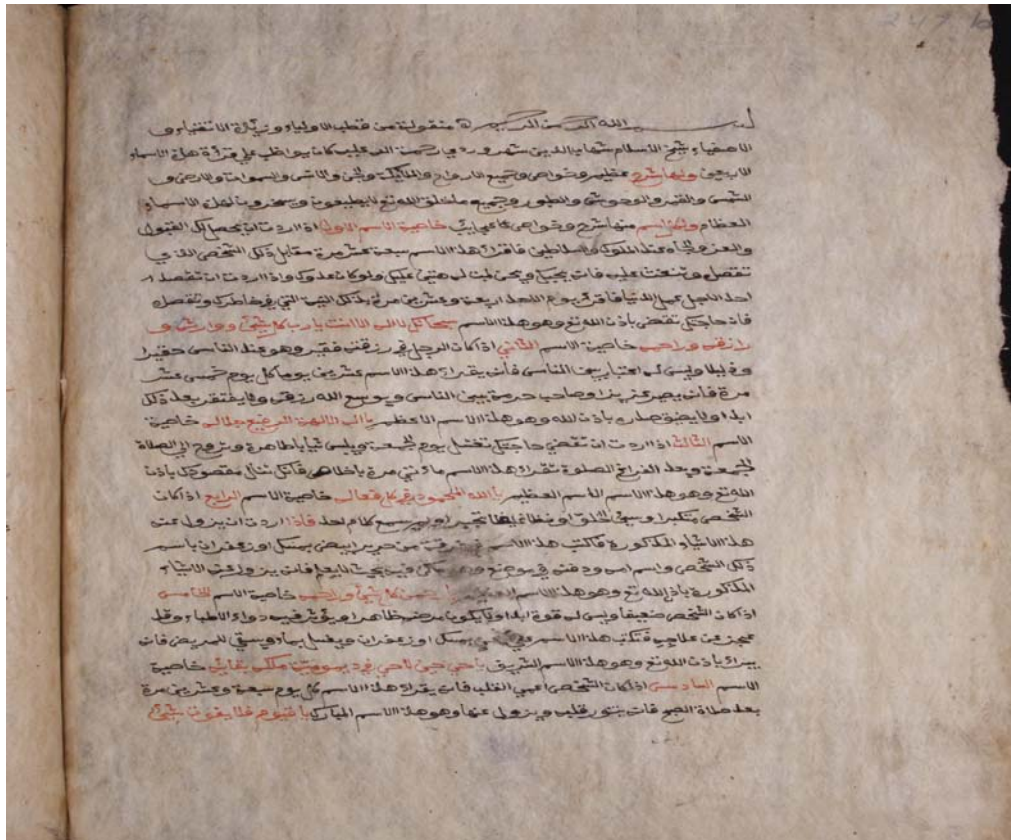 247 b
بسم الله الرحمن الرحيم منقولة من قطب الاولياء وزبدة الاتقياء و
الاصفياء شيخ الاسلام شهاب الدين سهروردي رحمة الله عليه كان يواظب علي قراءة هذه الاسماء
الاربعين ولها شرح عظيم وخواص وجميع الارواح والملائكة والجن والانس والسموات والارض و
الشمس والقمر والوحوش والطيور وجميع ما خلق الله تع لهذه الاسماء
العظام ولكل اسم منها شرح وخواص عجايب خاصية الاسم الاول اذا اردت ان يحصل لك القبول
والعز والجاه عند الملوك والسلاطين فاقراء هذا الاسم سبعة عشر مرة مقابل ذلك الشخص الذي
تقصد عليه فانه ولو كان عدوك واذا اردت ان تقصد
احد الاجل عمل الدنيا فاقراء يوم الاحد اربعة وعشرين مرة بذلك النية التي في خاطرك وتقصده
فان حاجتك تقضى باذن الله تع وهو هذا الاسم سبحانك لا اله الا انت يا رب كل شيئ ووارثه و
رازقه وراحمه خاصية الاسم الثاني اذا كان الرجل في رزقه فقير وهو عند الناس حقيرا
وذليلا وليس له اعتبار بين الناس فانه يقراء هذا الاسم عشرين يوما كل يوم خمسة عشر
مرة فانه يصير عزيزا وصاحب حرمة بين الناس ويوسع الله رزقه ولا يفتقر بعد ذلك
ابدا ولا يضيق صدره باذن الله وهو هذا الاسم الاعظم يا اله الالهة الرفيع جلاله خاصية
الاسم الثالث اذا اردت ان تقضي حاجتك تغتسل يوم الجمعة وتلبس ثيابا طاهرة وتروح الي الصلاة
الجمعة وبعد الفراغ الصلوة تقراء هذا الاسم مائتي مرة باخلاص فانك تنال مقصودك باذن
الله تع وهو هذا الاسم الاسم العظيم يا الله المحمود في كل فعاله خاصية الاسم الرابع اذا كان
الشخص متكبرا وسيئ الخلق او فظا غليظا كلام احد فاذا اردت ان يزول عنه
هذا الاشياء المذكورة فاكتب هذا الاسم في خرقة من حرير ابيض بمسك او زعفران باسم
ذلك الشخص واسم امه ودفنه في موضع فيه بحيث لا يعلم فانه يزول عنه الاشياء
المذكورة باذن الله تع وهو هذا الاسم يا رحمن كل شيئ وراحمه خاصية الاسم الخامس
اذا كان الشخص ضعيفا وليس له قوة ابدا ولا يكون مرضه ظاهرا ولا يؤثر فيه دواء الاطباء وقد
عجز عن علاجه فتكتب هذا الاسم في بمسك او زعفران ويغسل بماء ويسقي للمريض فانه
يبراء باذن الله تع وهو هذا الاسم الشريف يا حي حين لا حي في ديمومة ملكه وبقائه خاصية
الاسم السادس اذا كان الشخص اعمي القلب فانه يقراء هذا الاسم كل يوم سبعة وعشرين مرة
بعد صلاة الصبح فانه ينور قلبه ويزول عنها وهو هذا الاسم المبارك يا قيوم فلا يفوت شيئ